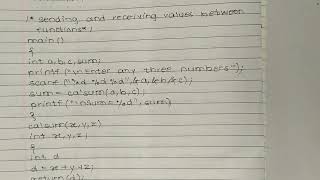 /* sending and receiving values between
functions*/
main()
{
int a,b,c,sum;
printf("\nEnter any three numbers");
scanf("%d %d %d",&a,&b,&c);
sum = calsum(a,b,c);
printf("\nSum=%d",sum)
}
calsum(x,y,z)
int x,y,z;
{
int d
d = x+y+z;
return(d);